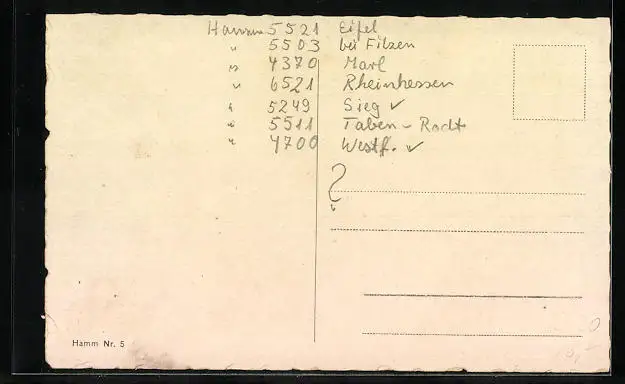 Hamm 5521 Eifel
" 5503 bei Filzen
" 4370 Marl
" 6521 Rheinhessen
" 5249 Sieg ✓
" 5511 Taben - Rodt
" 4700 Westf. ✓
?
Hamm Nr. 5